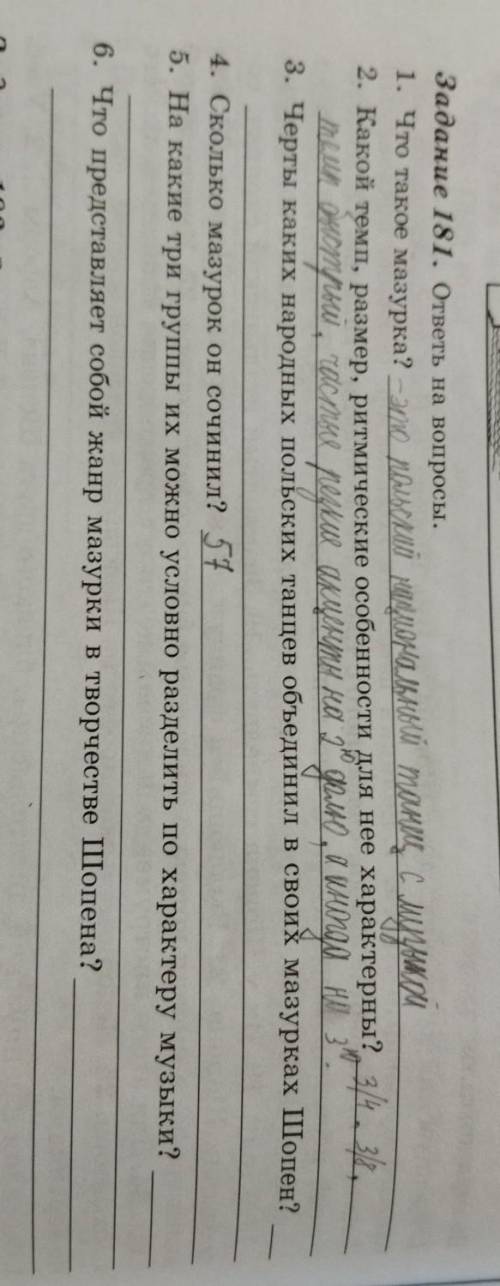 Задание 181. Ответь на вопросы.
1. Что такое мазурка? - это польский национальный танец с музыкой
2. Какой темп, размер, ритмические особенности для нее характерны? 3/4, 3/8,
темп быстрый, частые резкие акценты на 2ю долю, а иногда на 3ю.
3. Черты каких народных польских танцев объединил в своих мазурках Шопен?
4. Сколько мазурок он сочинил? 57
5. На какие три группы их можно условно разделить по характеру музыки?
6. Что представляет собой жанр мазурки в творчестве Шопена?